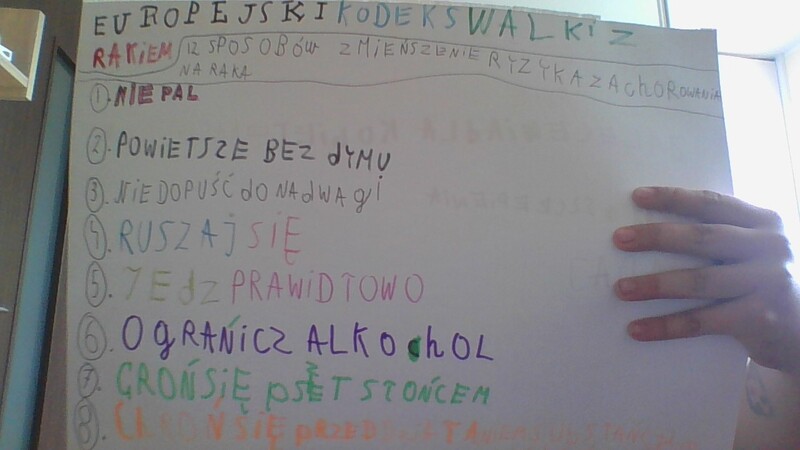 EUROPEJSKI KODEKS WALKI Z
RAKIEM 12 SPOSOBÓW ZMIEŃSZENIE RYZYKA ZACHOROWANIA
NA RAKA
1. NIE PAL
2. POWIETSZE BEZ dYMU
3. NIEDOPUŚĆ dO NAdWAgI
4. RUSZAJ SIĘ
5. JEdZ PRAWIDTOWO
6. OgRAŃICZ ALKOchOL
7. GROŃ SIĘ pSET STOŃCEM
8. ChROŃ SIĘ pRZED